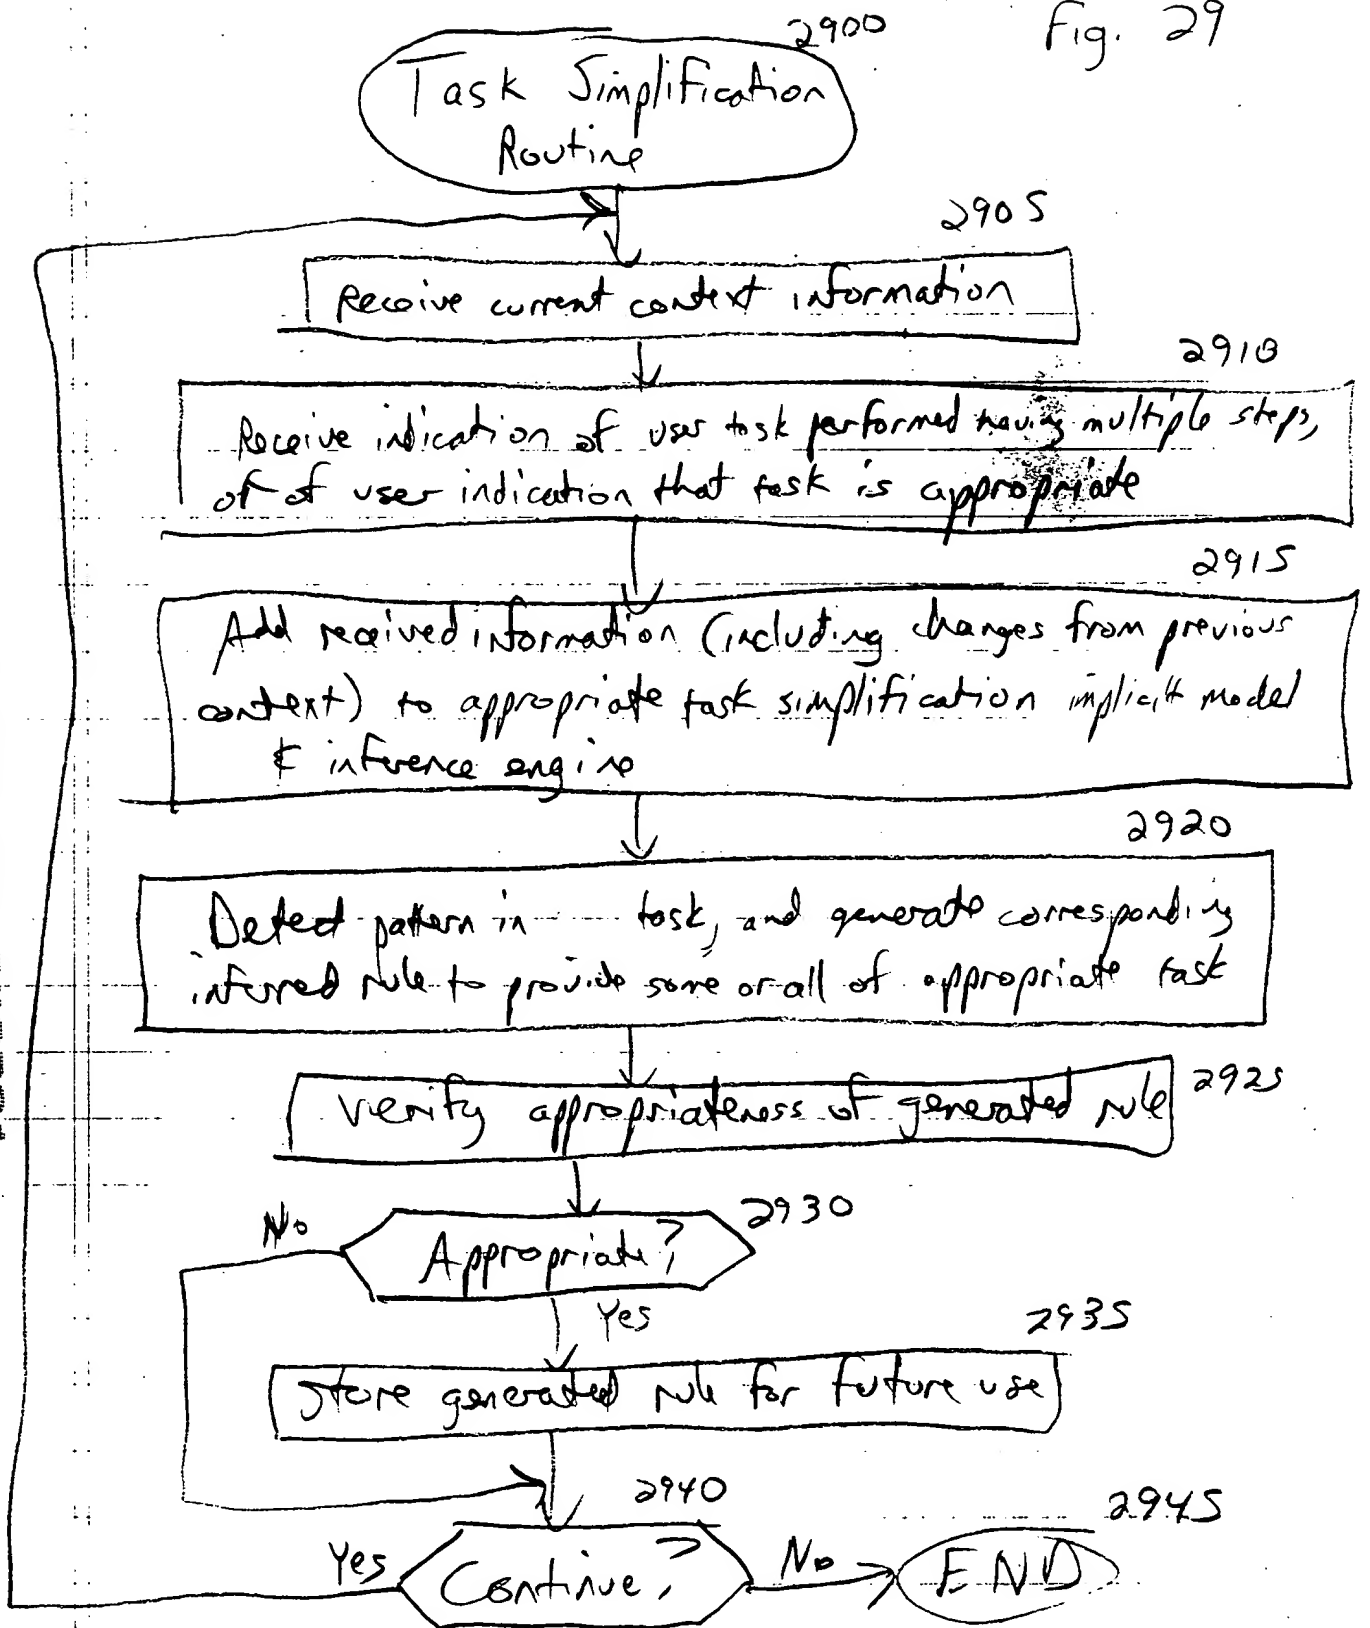 2900
Fig. 29
Task Simplification
Routine
2905
Receive current context information
2910
Receive indication of user task performed having multiple steps,
or of user indication that task is appropriate
2915
Add received information (including changes from previous
context) to appropriate task simplification implicit model
& inference engine
2920
Detect pattern in task, and generate corresponding
inferred rule to provide some or all of appropriate task
Verify appropriateness of generated rule
2925
No
2930
Appropriate?
Yes
2935
Store generated rule for future use
2940
2945
Yes
Continue?
No
END